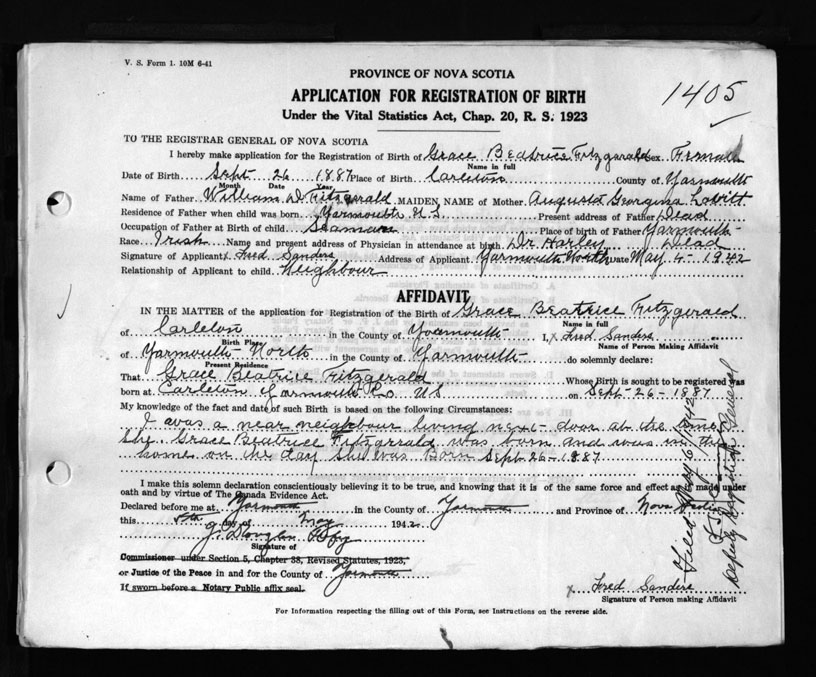 V. S. Form 1. 10M 6-41
PROVINCE OF NOVA SCOTIA
1405
APPLICATION FOR REGISTRATION OF BIRTH
Under the Vital Statistics Act, Chap. 20, R. S. 1923
TO THE REGISTRAR GENERAL OF NOVA SCOTIA
I hereby make application for the Registration of Birth of Grace Beatrice Fitzgerald Sex Female
Name in full
Date of Birth Sept 26 1887 Place of Birth Carleton County of Yarmouth
Month Date Year
Name of Father William D Fitzgerald MAIDEN NAME of Mother Augusta Georgina Lovitt
Residence of Father when child was born Yarmouth N.S. Present address of Father Dead
Occupation of Father at Birth of child Seaman Place of birth of Father Yarmouth
Race Irish Name and present address of Physician in attendance at birth Dr Harley Dead
Signature of Applicant Fred Sanders Address of Applicant Yarmouth North Date May 4 - 1942
Relationship of Applicant to child Neighbour
AFFIDAVIT
IN THE MATTER of the application for Registration of the Birth of Grace Beatrice Fitzgerald
Name in full
of Carleton in the County of Yarmouth I, x Fred Sanders
Birth Place Name of Person Making Affidavit
of Yarmouth North in the County of Yarmouth do solemnly declare:
Present Residence
That Grace Beatrice Fitzgerald Whose Birth is sought to be registered was
born at Carleton Yarmouth Co NS on Sept - 26 - 1887
My knowledge of the fact and date of such Birth is based on the following Circumstances:
I was a near neighbour living next door at the time
she Grace Beatrice Fitzgerrald was born and was in the
home on the day she was Born Sept 26 - 1887
I make this solemn declaration conscientiously believing it to be true, and knowing that it is of the same force and effect as if made under
oath and by virtue of The Canada Evidence Act.
Declared before me at Yarmouth in the County of Yarmouth and Province of Nova Scotia
this 5th day of May 1942
J. Douglas
Signature of
Commissioner under Section 5, Chapter 38, Revised Statutes, 1923,
or Justice of the Peace in and for the County of Yarmouth
If sworn before a Notary Public affix seal.
x Fred Sanders
Signature of Person making Affidavit
For Information respecting the filling out of this Form, see Instructions on the reverse side.
Filed May 16/1942
Deputy Registrar General